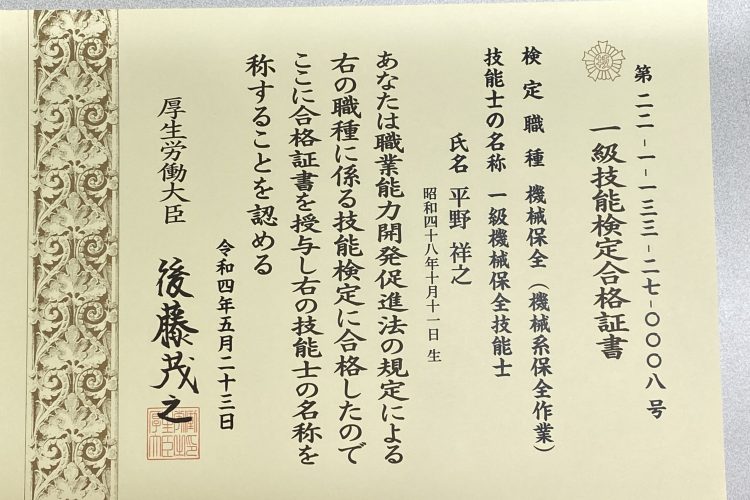 第二二-一-一三三-二七-〇〇〇八号
一級技能検定合格証書
検定職種 機械保全(機械系保全作業)
技能士の名称 一級機械保全技能士
氏名 平野 祥之
昭和四十八年十月十一日 生
あなたは職業能力開発促進法の規定による
右の職種に係る技能検定に合格したので
ここに合格証書を授与し右の技能士の名称を
称することを認める
令和四年五月二十三日
厚生労働大臣 後藤茂之